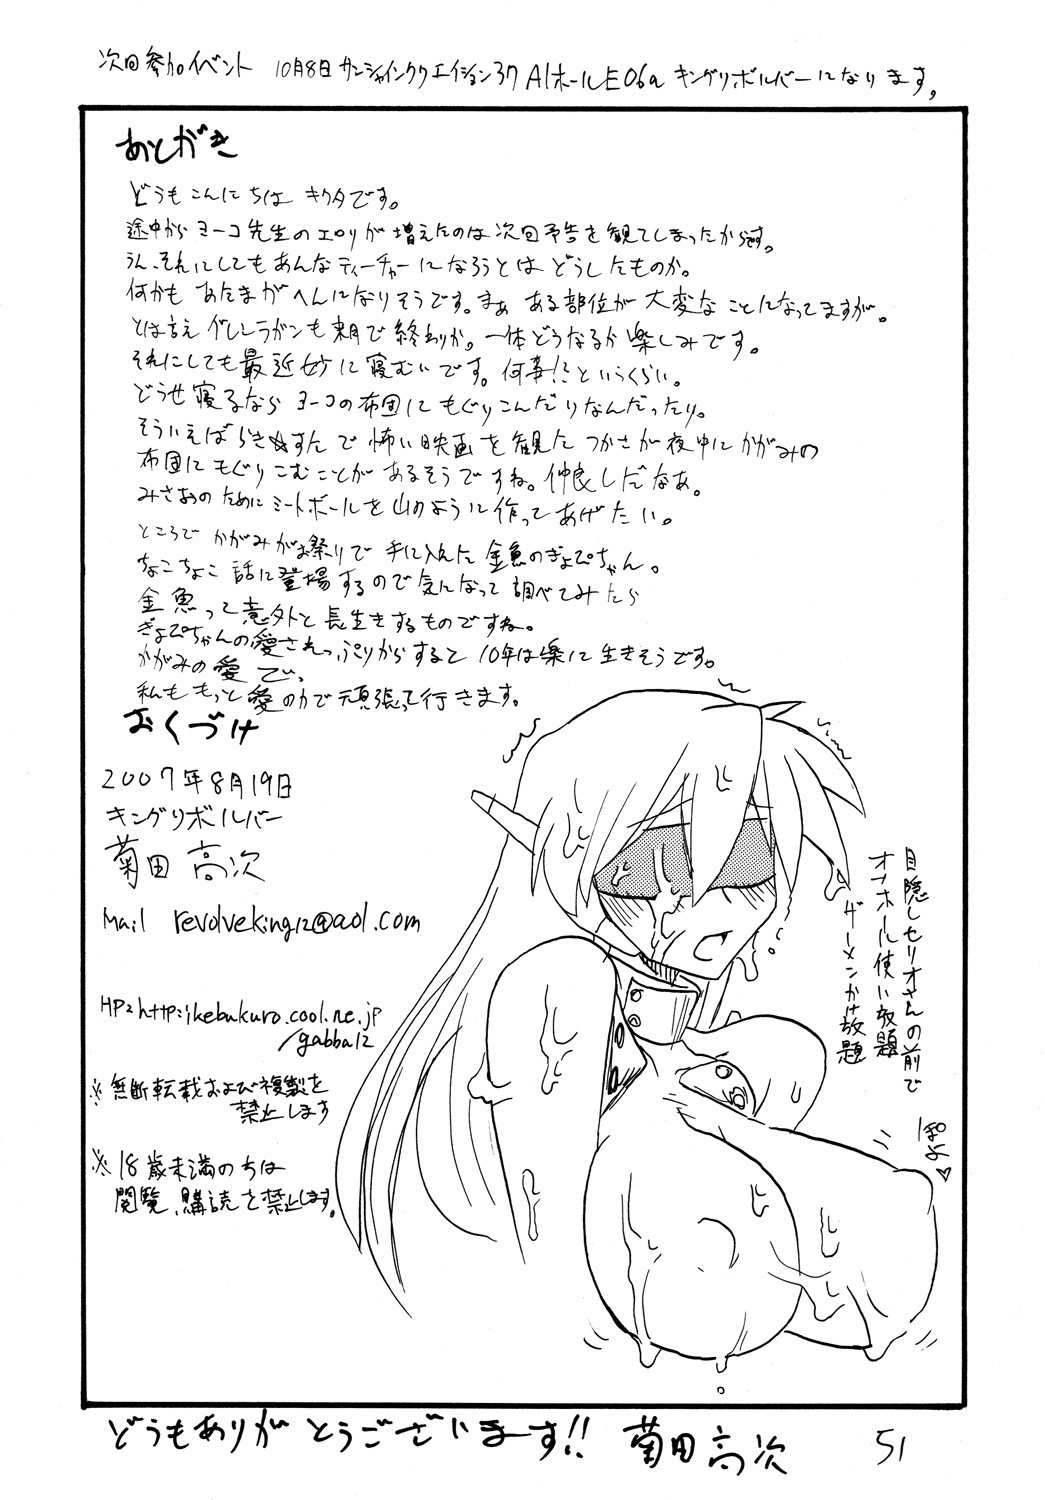 次回参加イベント 10月8日 サンシャインクリエイション37 A1ホールE06a キングリボルバーになります。
あとがき
どうもこんにちは キクタです。
途中から ヨーコ先生のエロりが増えたのは次回予告を観てしまったからです。
うん、それにしてもあんなティーチャーになろうとは どうしたものか。
何かも あたまがへんになりそうです。まぁ ある部位が 大変なことになってますが。
とは言え グレンラガンも来月で終わりか。一体どうなるか楽しみです。
それにしても最近妙に寝むいです。何事!? というくらい。
どうせ寝るなら ヨーコの布団にもぐりこんだりなんだったり。
そういえば らき☆すたで 怖い映画を観たつかさが夜中にかがみの
布団にもぐりこむことがあるそうですね。仲良しだなぁ。
みさおのためにミートボールを山のように作ってあげたい。
ところで かがみがお祭りで手に入れた 金魚のぎょぴちゃん。
ちょこちょこ 話に登場するので気になって調べてみたら
金魚って意外と長生きするものですね。
ぎょぴちゃんの愛されっぷりからすると 10年は楽に生きそうです。
かがみの愛で、
私ももっと愛の力で頑張って行きます。
おくづけ
2007年8月19日
キングリボルバー
菊田 高次
Mail revolveking12@aol.com
HP=http:ikebukuro.cool.ne.jp
/gabba12
※無断転載および複製を
禁止します
※18歳未満のちは
閲覧、購読を禁止します。
目隠しセリオさんの前で
オナホール使い放題
ザーメンかけ放題
ぽよ♡
どうもありがとうございます!! 菊田高次
51